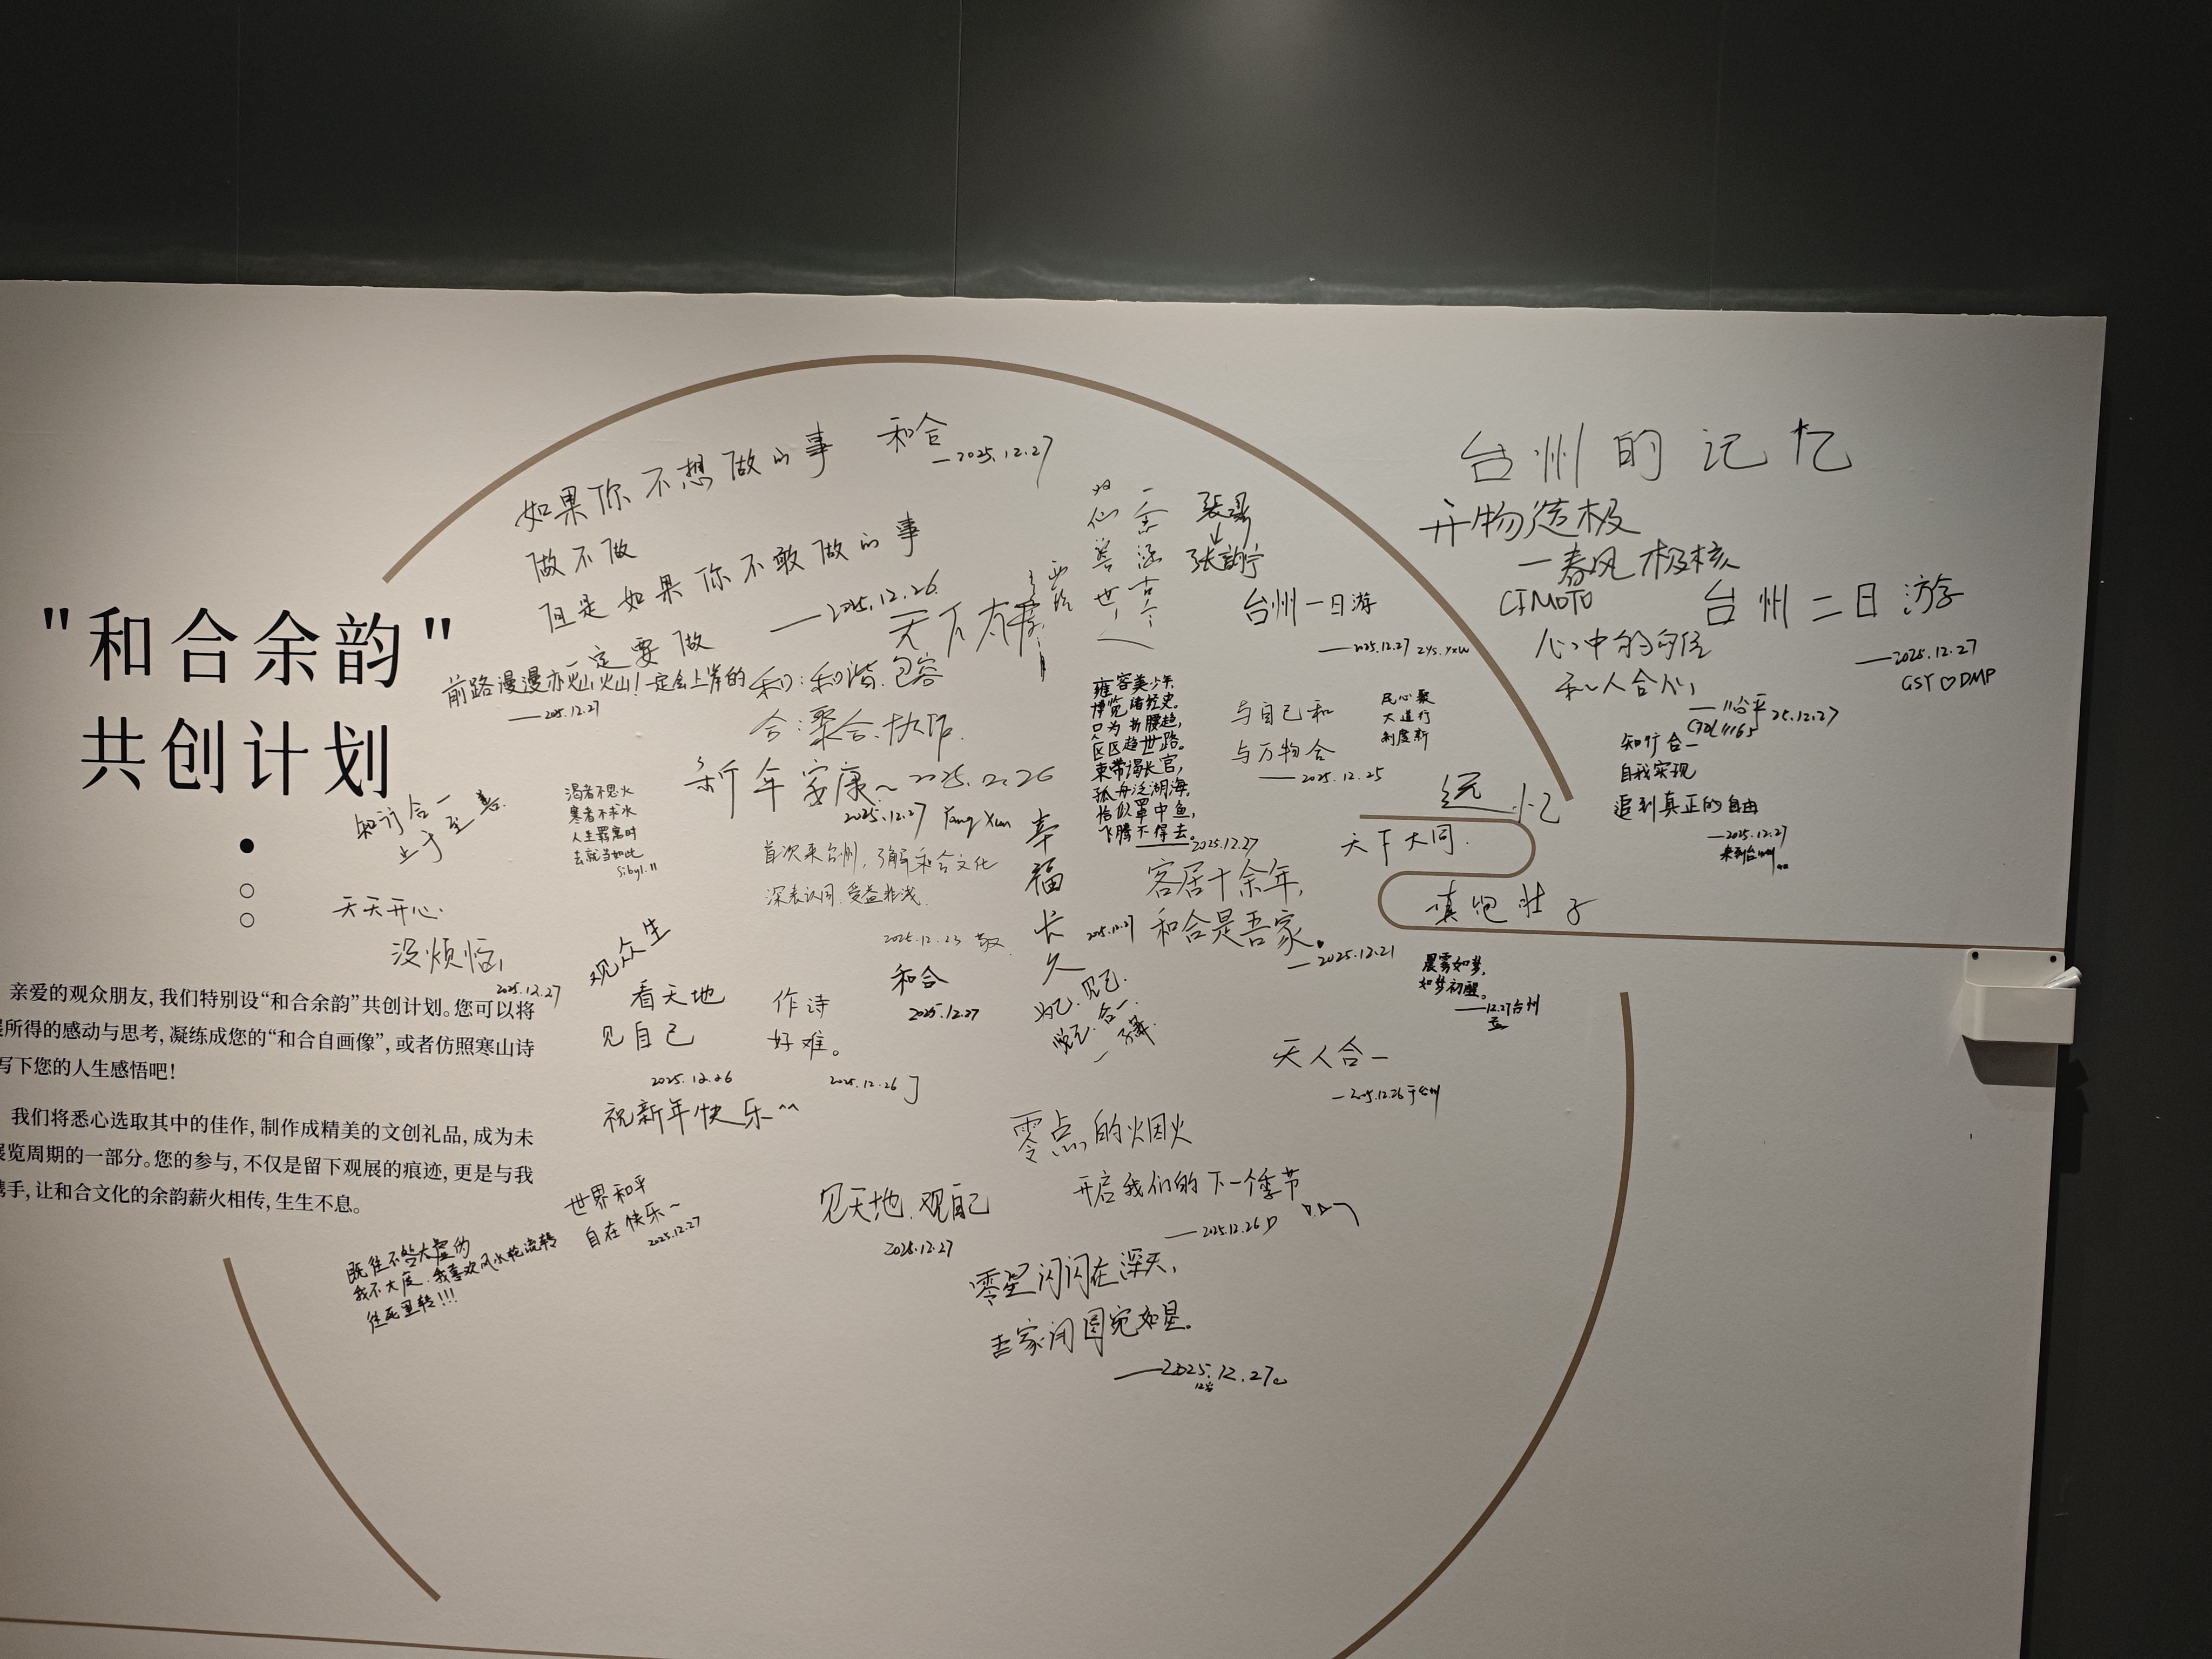 "和合余韵"
共创计划
亲爱的观众朋友，我们特别设“和合余韵”共创计划。您可以将
所得的感动与思考，凝练成您的“和合自画像”，或者仿照寒山诗
写下您的人生感悟吧！
我们将悉心选取其中的佳作，制作成精美的文创礼品，成为未
展览周期的一部分。您的参与，不仅是留下观展的痕迹，更是与我
携手，让和合文化的余韵薪火相传，生生不息。
和合
—2025.12.27
如果你不想做的事
做不做
但是如果你不敢做的事
一定要做
——2025.12.26
前路漫漫亦灿灿！一定会上岸的
——2025.12.27
和：和谐.包容
合：聚合、协作.
新年安康~2025.12.26
2025.12.27 Yang Xun
首次来台州，了解和合文化
深表认同.受益非浅.
2025.12.23
知行合一
止于至善.
渴者不思火
寒者不求水
人生羁寓时
去就当如此
Sibyl.11
天天开心.
没烦恼
2025.12.27
观众生
看天地
见自己
2025.12.26
作诗
好难。
2025.12.26
和合
2025.12.27
祝新年快乐^^
世界和平
自在快乐~
2025.12.27
我不大度.我喜欢风水轮流转
往死里转!!!
见天地.观自己
2025.12.27
幸福长久
2025.12.27
台州一日游
——2025.12.27 ZYS.YXW
雍容美少年,
博览诸经史。
区区趋世路。
束带谒长官,
孤舟泛湖海,
恰似罩中鱼,
飞腾不得去。
2025.12.27
与自己和
与万物合
——2025.12.25
民心聚
大道行
制度新
客居十余年,
和合是吾家.
—2025.12.21
天下大同.
填饱肚子
晨雾如梦,
如梦初醒。
——12.27台州
天人合一
—2025.12.26于台州
零点的烟火
开启我们的下一个季节
——2025.12.26
零星闪闪在深天,
——2025.12.27
12岁
台州的记忆
开物造极
—春风 极核
CFMOTO
台州二日游
——2025.12.27
GSY♡DMP
25.12.27
知行合一
自我实现
追到真正的自由
—2025.12.27
来到台州